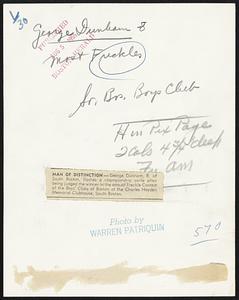 30
George Dunham &
most Freckles
So. Bos. Boys Club
Hm Pix Page
2 cols 4 1/2 deep
For AM
MAN OF DISTINCTION—George Dunham, 8, of
South Boston, flashes a championship smile after
being judged the winner in the annual Freckle Contest
of the Boys' Clubs of Boston at the Charles Hayden
Memorial Clubhouse, South Boston.
Photo by
WARREN PATRIQUIN
570